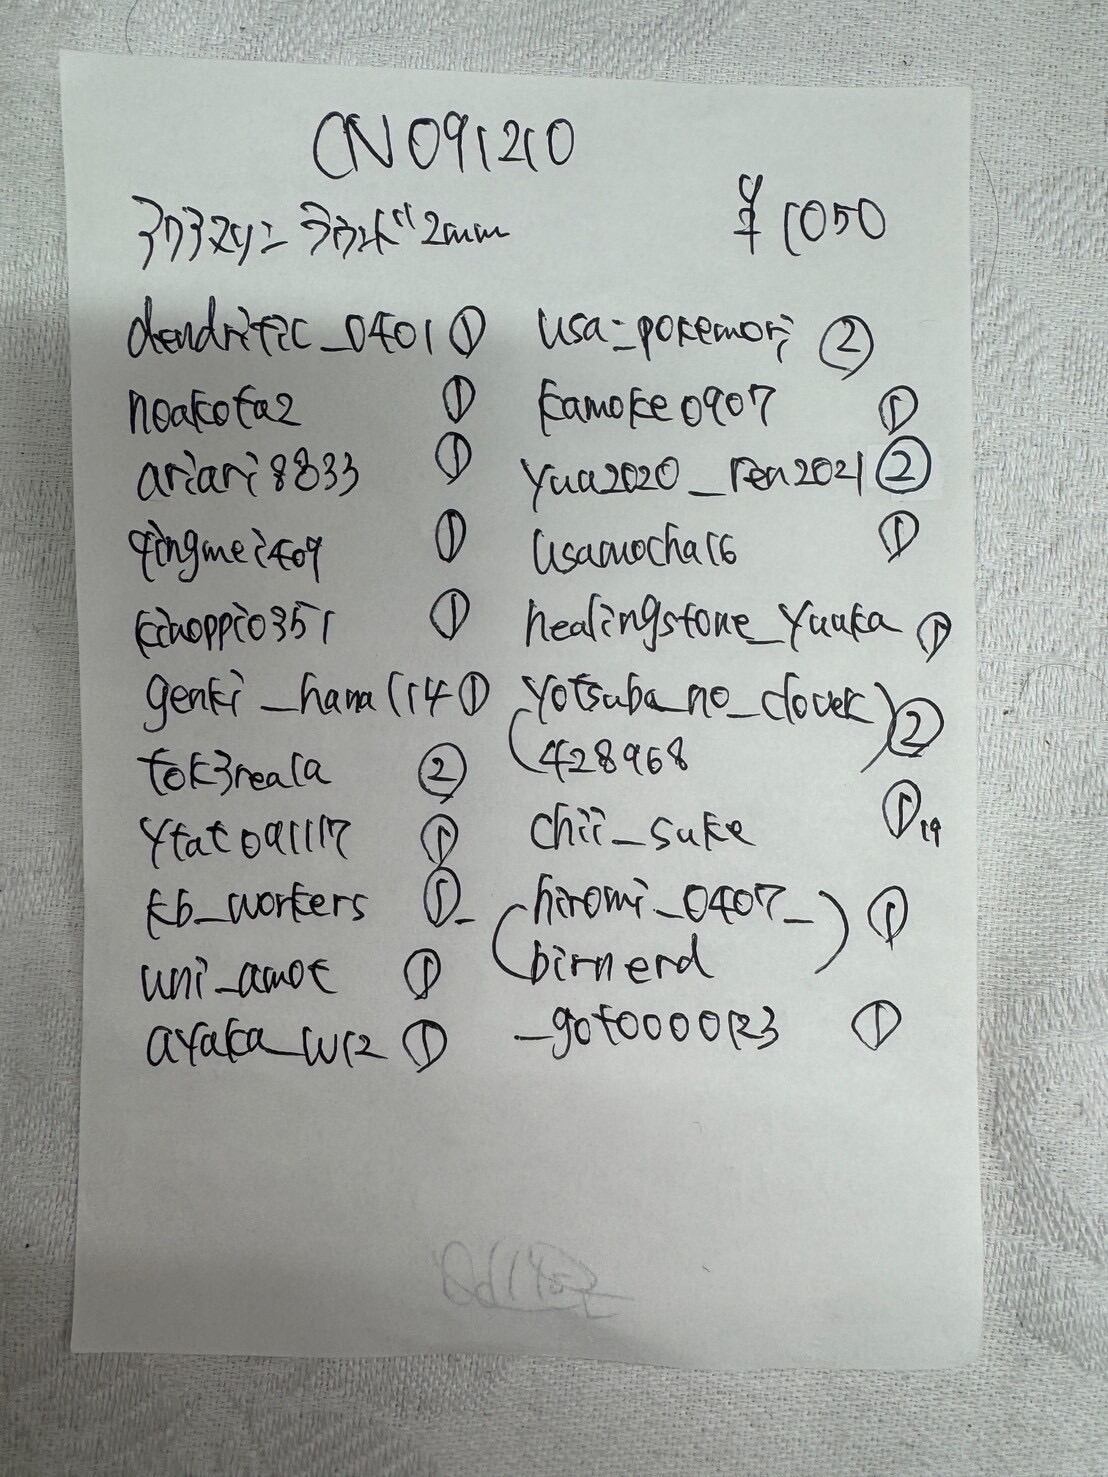 CN091210
アクアマリン ラウンド 2mm ¥1050
dendritic_0401 ①
noakota2 ①
ariari8833 ①
qingmei409 ①
kinoppio351 ①
genki_hana1140 ①
tok3reala ②
ytat091117 ①
kb_workers ①
uni_amot ①
ayaka_w12 ①
usa_pokemori ②
kamoke0907 ①
yua2020_ren2021 ②
usamocha16 ①
healingstone_yuuka ①
yotsuba_no_clover
428968 ②
chii_suke ① 19
hiromi_0407_
birnerd ①
_goto0000123 ①